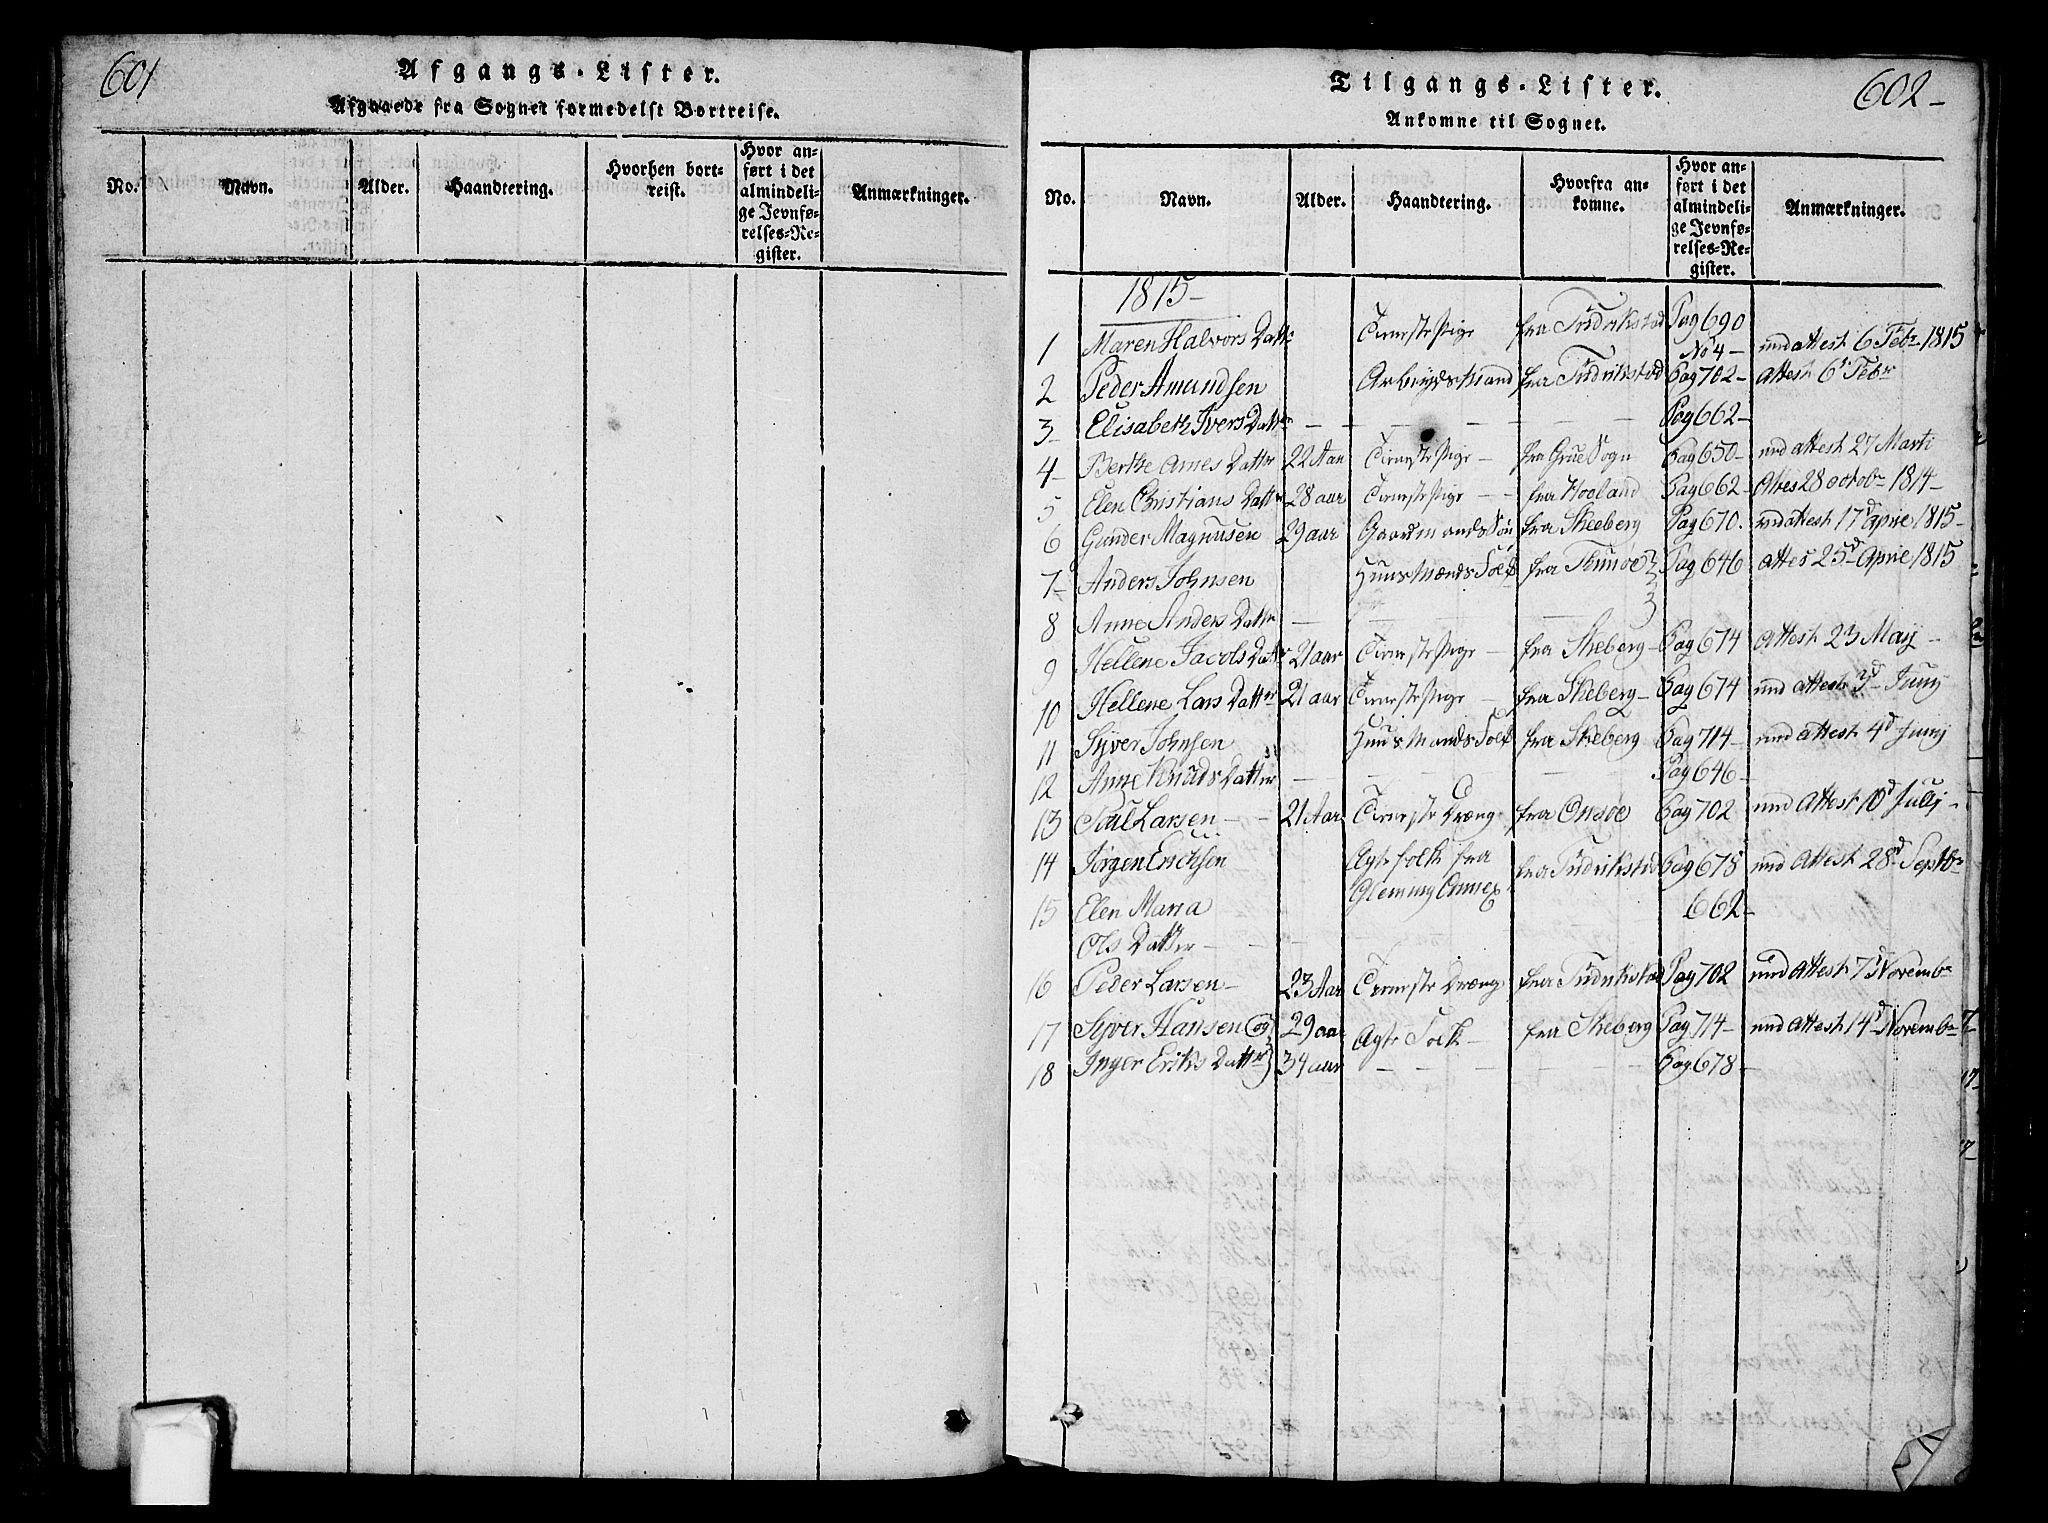 601
Afgangs-Lister.
Afgaaede fra Sognet formedelst Bortreise.
No.
Navn.
Alder.
Haandtering.
Hvorhen bort-
reist.
Hvor an-
ført i det
almindeli-
ge Jevnfø-
relses-Re-
gister.
Anmærkninger.
602-
Tilgangs-Lister.
Ankomne til Sognet.
No.
Navn.
Alder.
Haandtering.
Hvorfra an-
komne.
Hvor an-
ført i det
almindeli-
ge Jevnfø-
relses-Re-
gister.
Anmærkninger.
1815-
1 Maren Halvors Dattr Tieneste Pige fra Fridrikstad Pag 690 No 4- und attest 6 Febr 1815
2 Peder Amundsen Arbeyds Mand fra Fridrikstad Pag 702- attest 6 Febr
3- Elisabeth Ivers Dattr - - - - Pag 662-
4- Berthe Arnes Dattr 22 Aar Tieneste Pige - fra Grue Sogn Pag 650- und attest 27 Marti
5 Elen Christians Dattr 28 aar Tieneste Pige - - fra Hooland Pag 662- Attes 28 octobr 1814-
6 Gunder Magnusen 29 aar Gaardmands Søn fra Skeeberg Pag 670. und attest 17d Aprie 1815-
7- Anders Johnsen Huus Mænds Folk fra Thunøe Pag 646 attes 25d Aprie 1815
8 Anne Anders Dattr - - -
9 Hellene Jacobs Dattr 21 aar Tieneste Pige - fra Skeberg- Pag 674 Attest 23 Maij -
10 Hellene Lars Dattr 21 aar Tieneste Pige - fra Skeberg- Pag 674 und attest 3d Junij
11 Syver Johnsen Huus Mands Folk fra Skeberg Pag 714- und attest 4d Junij
12 Anne Knuds Datter - - - Pag 646-
13 Poul Larsen - - 21 Aar Tieneste Dræng fra Onsøe Pag 702 und Attest 10d Julij -
14 Jørgen Erichsen Agte folk fra fra Fridrikstad Pag 678 und Attest 28d Septbr
Glemmy Annex
15 Elen Maria 662-
Ols Datter - - -
16 Peder Larsen - 23 Aar Tieneste Dræng fra Fridrikstad Pag 702 und Attest 7d Novembr
17 Syver Hansen og 29 aar Agte Folk - fra Skeberg Pag 714- und Attest 14d Novembr
18 Inger Eriks Dattr 34 aar - - - Pag 678-